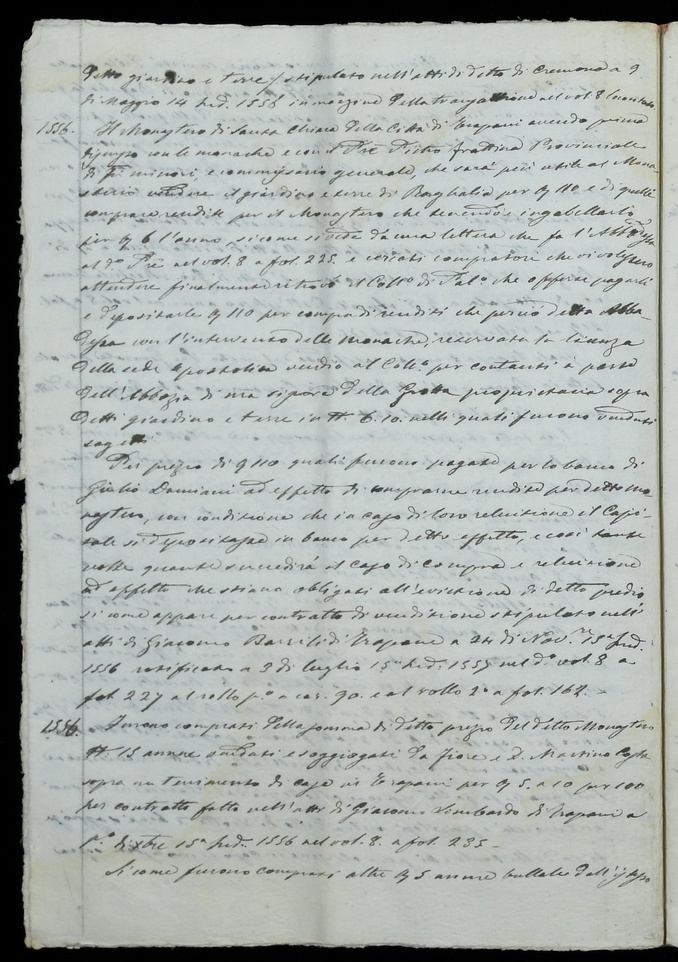 detto giardino e terre stipulato nell'atti di detto di Cremona a 9
di Maggio 14 Ind. 1556 in margine della transazione nel vol. 8
1556. Il Monastero di Santa Chiara della Città di Trapani avendo prima
discorso con le monache e con il Pre Pietro Frattina Provinciale
di Pri minori, e commissario generale, che sarà più utile al Mona-
sterio vendere il giardino e terre di Baghalia per 110 e di quelli
comprare rendite per il Monastero che tenendo e ingabellarlo
per 6 l'anno, sicome si vede da una lettera che fa l'Abbadessa
al do Pre nel vol. 8 a fol. 225. e cercati compratori che vi volessero
attendere finalmente ritrovò il Collo di Palo che offerse pagarli
e depositarle 110 per compra di renditi che perciò detta Abba-
dessa con l'intervento delle monache, reservata la licenza
della sede apostolica vendio al Collo per contanti a parte
dell'Abbazia di una signora della Grotta proprietaria sopra
detti giardino e terre in tt. 6.10. nelli quali furono venduti
sogetti
Per prezzo di 110 quali furono pagate per lo banco di
Giulio Damiani ad effetto di comprarne rendite per detto mo-
nastero, con condizione che in caso di loro reluizione il Capi-
tale si depositasse in banco per detto effetto, e così tante
volte quante succedirà al caso di compra e reluizione
ad effetto che stiano obligati all'evizione di detto predio
sicome appare per contratto di vendizione stipulato nell'
atti di Giacomo Barsili di Trapani a 24 di Nov.re 15a Ind.
1556 ratificato a 3 di luglio 15a Ind. 1557 nel do vol. 8 a
fol. 227 al rollo po a car. 90. e al rollo 2o a fol. 162. -
1556. Furono comprati della somma di detto prezzo del detto Monastero
tt. 15 annue venduti e soggiogati da Fiore e D. Martino
sopra un tenimento di case in Trapani per 5. a 10 per 100
per contratto fatto nell'atti di Giacomo Lombardo di Trapani a
po di xbre 15a Ind. 1556 nel vol. 8. a fol. 235 -
Sicome furono comprati altre 5 annue bullate dall'istesso